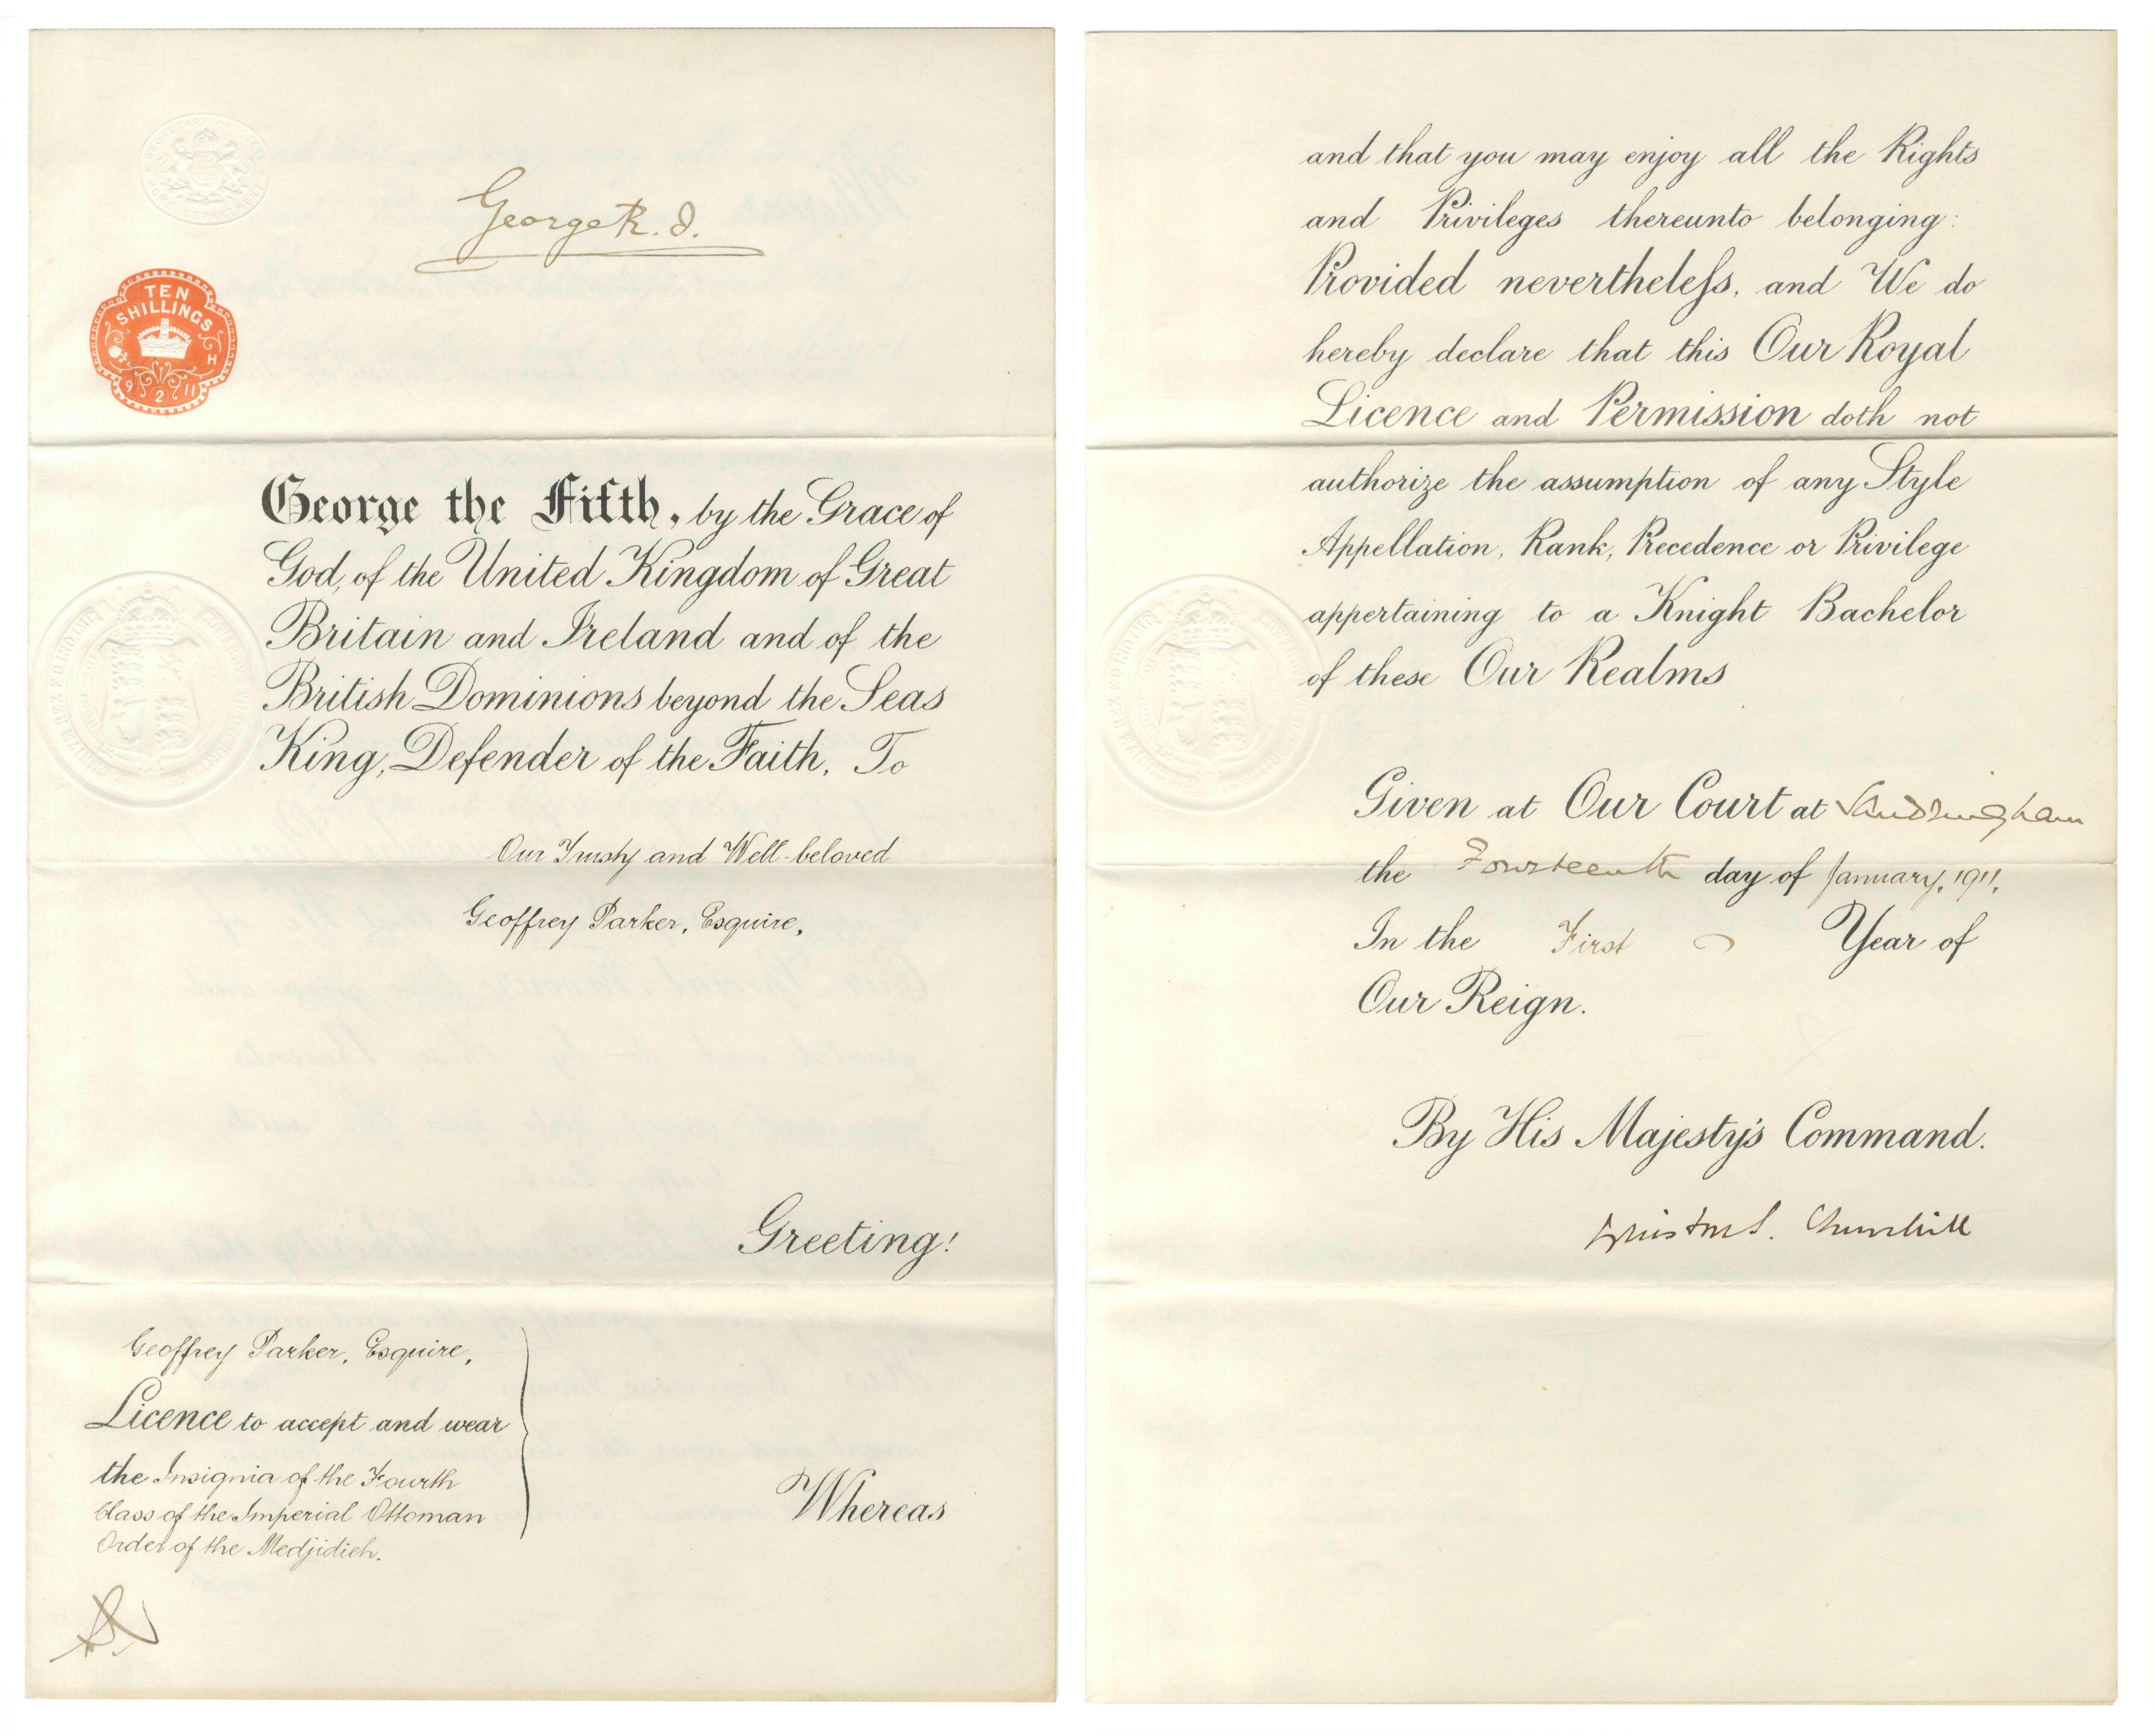 George R. I.
TEN
SHILLINGS
H
9 2 11
George the Fifth, by the Grace of
God, of the United Kingdom of Great
Britain and Ireland and of the
British Dominions beyond the Seas
King, Defender of the Faith, To
Our Trusty and Well-beloved
Geoffrey Parker, Esquire,
Greeting!
Geoffrey Parker, Esquire,
Licence to accept and wear
the Insignia of the Fourth
Class of the Imperial Ottoman
Order of the Medjidieh.
Whereas
and that you may enjoy all the Rights
and Privileges thereunto belonging:
Provided nevertheleſs, and We do
hereby declare that this Our Royal
Licence and Permission doth not
authorize the assumption of any Style
Appellation, Rank, Precedence or Privilege
appertaining to a Knight Bachelor
of these Our Realms
Given at Our Court at Sandringham
the Fourteenth day of January, 1911,
In the First Year of
Our Reign.
By His Majesty's Command.
Winston S. Churchill